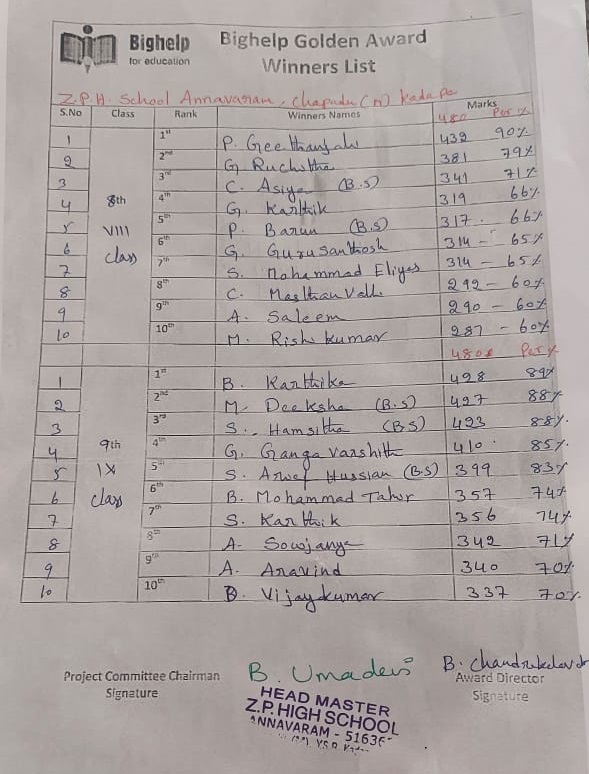 Bighelp
for education
Bighelp Golden Award
Winners List
Z.P.H. School Annavaram, Chapadu (M) Kadapa
S.No Class Rank Winners Names Marks
480 Per %
1 1st P. Geethanjali 432 90%
2 2nd G. Ruchitha 381 79%
3 3rd C. Asiya (B.S) 341 71%
4 8th 4th G. Karthik 319 66%
5 VIII 5th P. Barun (B.S) 317 66%
6 class 6th G. Gurusanthosh 314 - 65%
7 7th S. Mohammad Eliyas 314 - 65%
8 8th C. 292 - 60%
9 9th A. Saleem 290 - 60%
10 10th M. Rishi kumar 287 - 60%
480 Per %
1 1st B. Karthika 428 89%
2 2nd M. Deeksha (B.S) 427 88%
3 3rd S. Hamsitha (B.S) 423 88%
4 9th 4th G. Ganga Varshith 410 85%
5 IX 5th S. Hussian (B.S) 399 83%
6 class 6th B. Mohammad Tahir 357 74%
7 7th S. Karthik 356 74%
8 8th A. Sowjanya 342 71%
9 9th A. Aravind 340 70%
10 10th B. Vijaykumar 337 70%
B. Umadevi
Project Committee Chairman
Signature
B.
Award Director
Signature
HEAD MASTER
Z.P. HIGH SCHOOL
ANNAVARAM - 51636